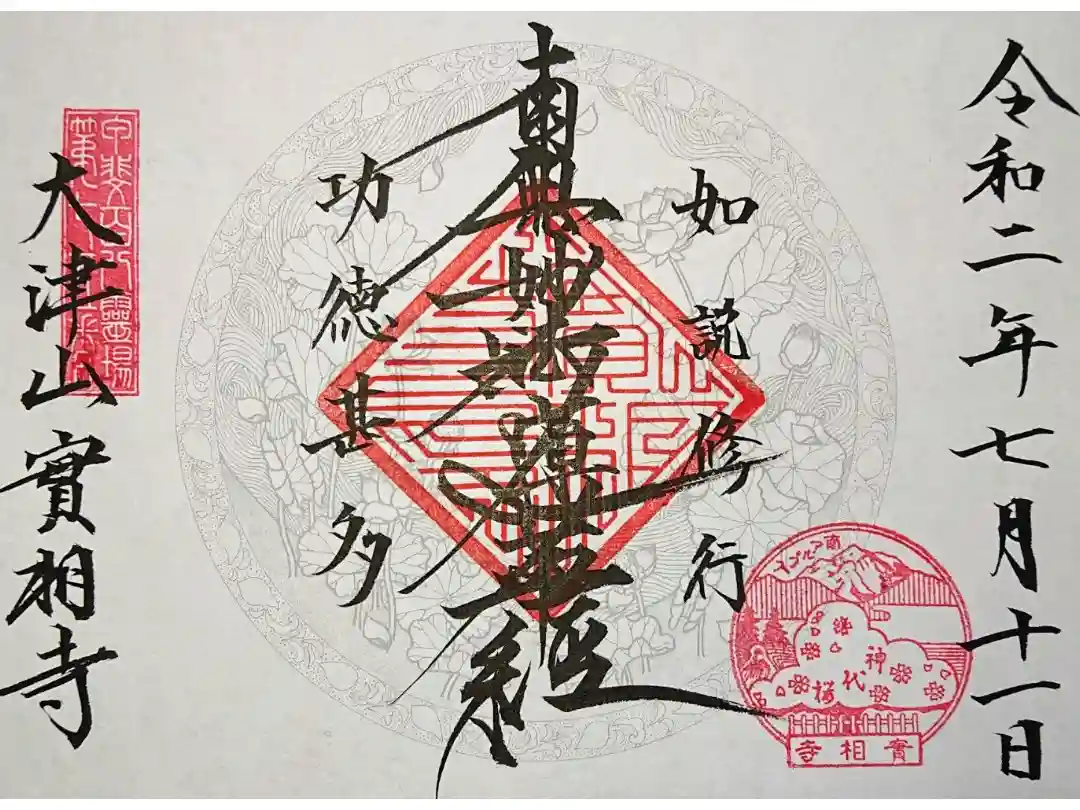 令和二年七月十一日
如説修行
南無妙法蓮華経
功徳甚多
大津山實相寺
甲斐百八霊場
南アルプス
神代桜
實相寺